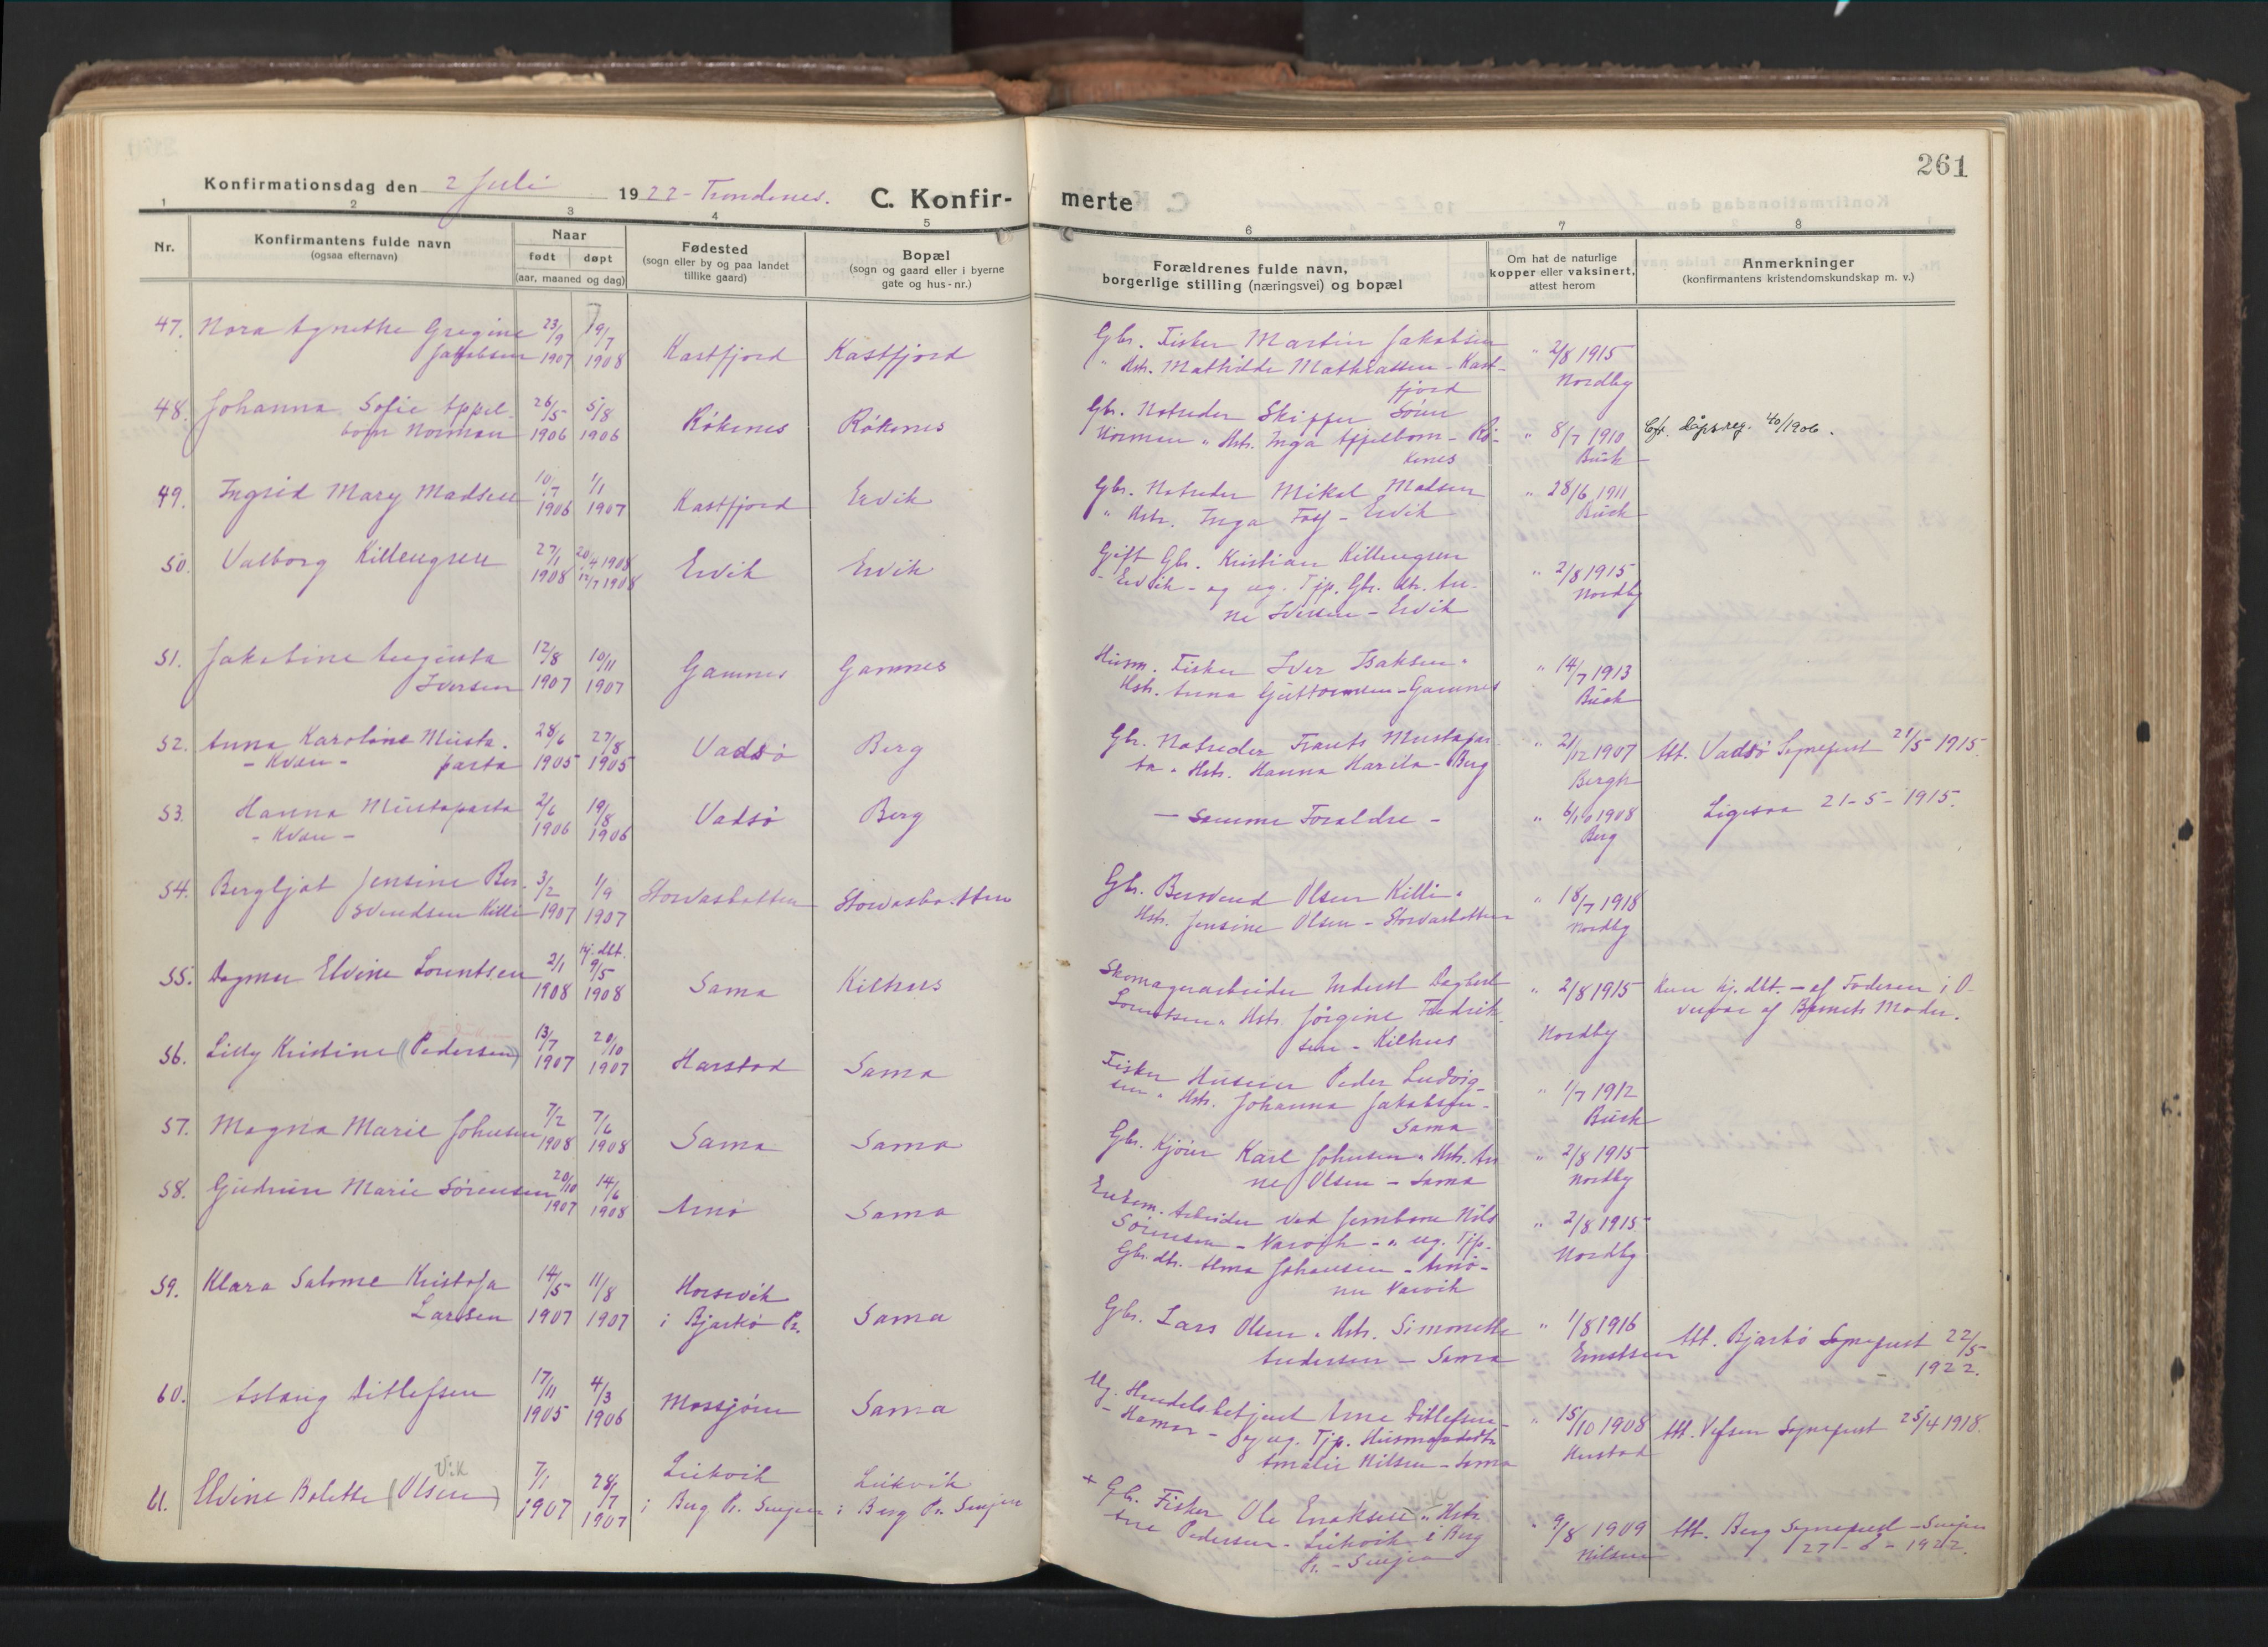 261
Konfirmationsdag den 2 Juli 1922 - Trondenes. C. Konfir- merte
1 2 3 4 5 6 7 8
Nr.
Konfirmantens fulde navn
(ogsaa efternavn)
Naar
født døpt
(aar, maaned og dag)
Fødested
(sogn eller by og paa landet
tillike gaard)
Bopæl
(sogn og gaard eller i byerne
gate og hus-nr.)
Forældrenes fulde navn,
borgerlige stilling (næringsvei) og bopæl
Om hat de naturlige
kopper eller vaksinert,
attest herom
Anmerkninger
(konfirmantens kristendomskundskap m. v.)
47. Nora Agnethe Gregine 23/9 19/7 Gbr. Fisker Martin Jakobsen
Jakobsen 1907 1908 Kastfjord Kastfjord " Hstr. Mathilde Mathiassen - Kast- " 2/8 1915
fjord Nordby
48. Johanna Sofie Appel- 26/5 5/8 Gbr. Notreder Skipper Sören
born Norman 1906 1906 Rökenes Rökenes Norman " Hstr. Inga Appelborn - Rö- " 8/7 1910 Cfr. Dåpsreg. 40/1906.
kenes Buck
49. Ingrid Mary Madsen 10/7 1/1 Kastfjord Ervik Gbr. Notreder Mikal Madsen " 28/6 1911
1906 1907 " Hstr. Inga Foss - Ervik Buck
50. Valborg Killengreen 27/1 20/4 1908 Ervik Ervik Gift Gbr. Kristian Killengreen
1908 12/7 1908 - Ervik - og ug. Tjp. Gbr. dtr. An- " 2/8 1915
ne Iversen - Ervik Nordby
51. Jakobine Augusta 12/8 10/11 Gamnes Gamnes Husm. Fisker Iver Isaksen " " 14/7 1913
Iversen 1907 1907 Hstr. Anna Guttormsen - Gamnes Buck
52. Anna Karoline Musta- 28/6 27/8 Vadsö Berg Gbr. Notreder Frants Mustapar- " 21/12 1907 Att. Vadsö Sogneprest 21/5 1915.
- Kvæn - parta 1905 1905 ta " Hstr. Hanna Harila - Berg Bergh
53. Hanna Mustaparta 2/6 19/8 Vadsö Berg - Samme Forældre - " 6/10 1908 Ligesaa 21-5-1915.
- Kvæn - 1906 1906 Berg
54. Bergljot Jensine Ber- 3/2 1/9 Storvasbotten Storvasbotten Gbr. Bersvend Olsen Killi " " 18/7 1918
svendsen Killi 1907 1907 Hstr. Jensine Olsen - Storvasbotten Nordby
55. Dagmar Elvine Lorentsen 2/1 hj. dbt. 9/5 Sama Kilhus Skomagerarbeider Inderst Dagbert " 2/8 1915 Kun hj. dbt. - af Faderen i O-
1908 1908 Lorentsen " Hstr. Jörgine Fredrik- vervær af Barnets Moder.
sen - Kilhus Nordby
56. Lilly Kristine (Pedersen) 13/7 20/10 Harstad Sama Fisker Huseier Peder Ludvig-
1907 1907 sen " Hstr. Johanna Jakobsen - " 1/7 1912
Sama Buck
57. Magna Marie Johnsen 7/2 7/6 Sama Sama Gbr. Kjörer Karl Johnsen " Hstr. An- " 2/8 1915
1908 1908 ne Olsen - Sama Nordby
58. Gudrun Marie Sörensen 20/10 14/6 Arnö Sama Enkem. Arbeider ved Jernbane Nils " 2/8 1915
1907 1908 Sörensen - Narvik - " ug. Tjp.
Gbr. dtr. Alma Johansen - Arnö - Nordby
nu Narvik
59. Klara Salome Kristofa 14/5 11/8 Horsevik Gbr. Lars Olsen " Hstr. Simonette " 1/8 1916 Att. Bjarkö Sogneprest 22/5
Larsen 1907 1907 i Bjarkö Pr. Sama Andersen - Sama Ernstsen - 1922.
60. Aslaug Ditlefsen 17/11 4/3 Mosjöen Sama Ug. Handelsbetjent Arne Ditlefsen - " 15/10 1908 Att. Vefsen Sogneprest 25/4 1918.
1905 1906 - Hamar - og ug. Tjp. Husmandsdtr.
Amalie Nilsen - Sama
61. Elvine Bolette (Olsen) Vik 7/1 28/7 Lükvik Lükvik + Gbr. Fisker Ole Enoksen " Hstr. " 9/8 1909 Att. Berg Sogneprest - Senjen
1907 1907 i Berg Pr. Senjen i Berg Pr. Senjen Ane Pedersen - Lükvik i Berg Nilsen 27-6-1922.
Pr. - Senjen